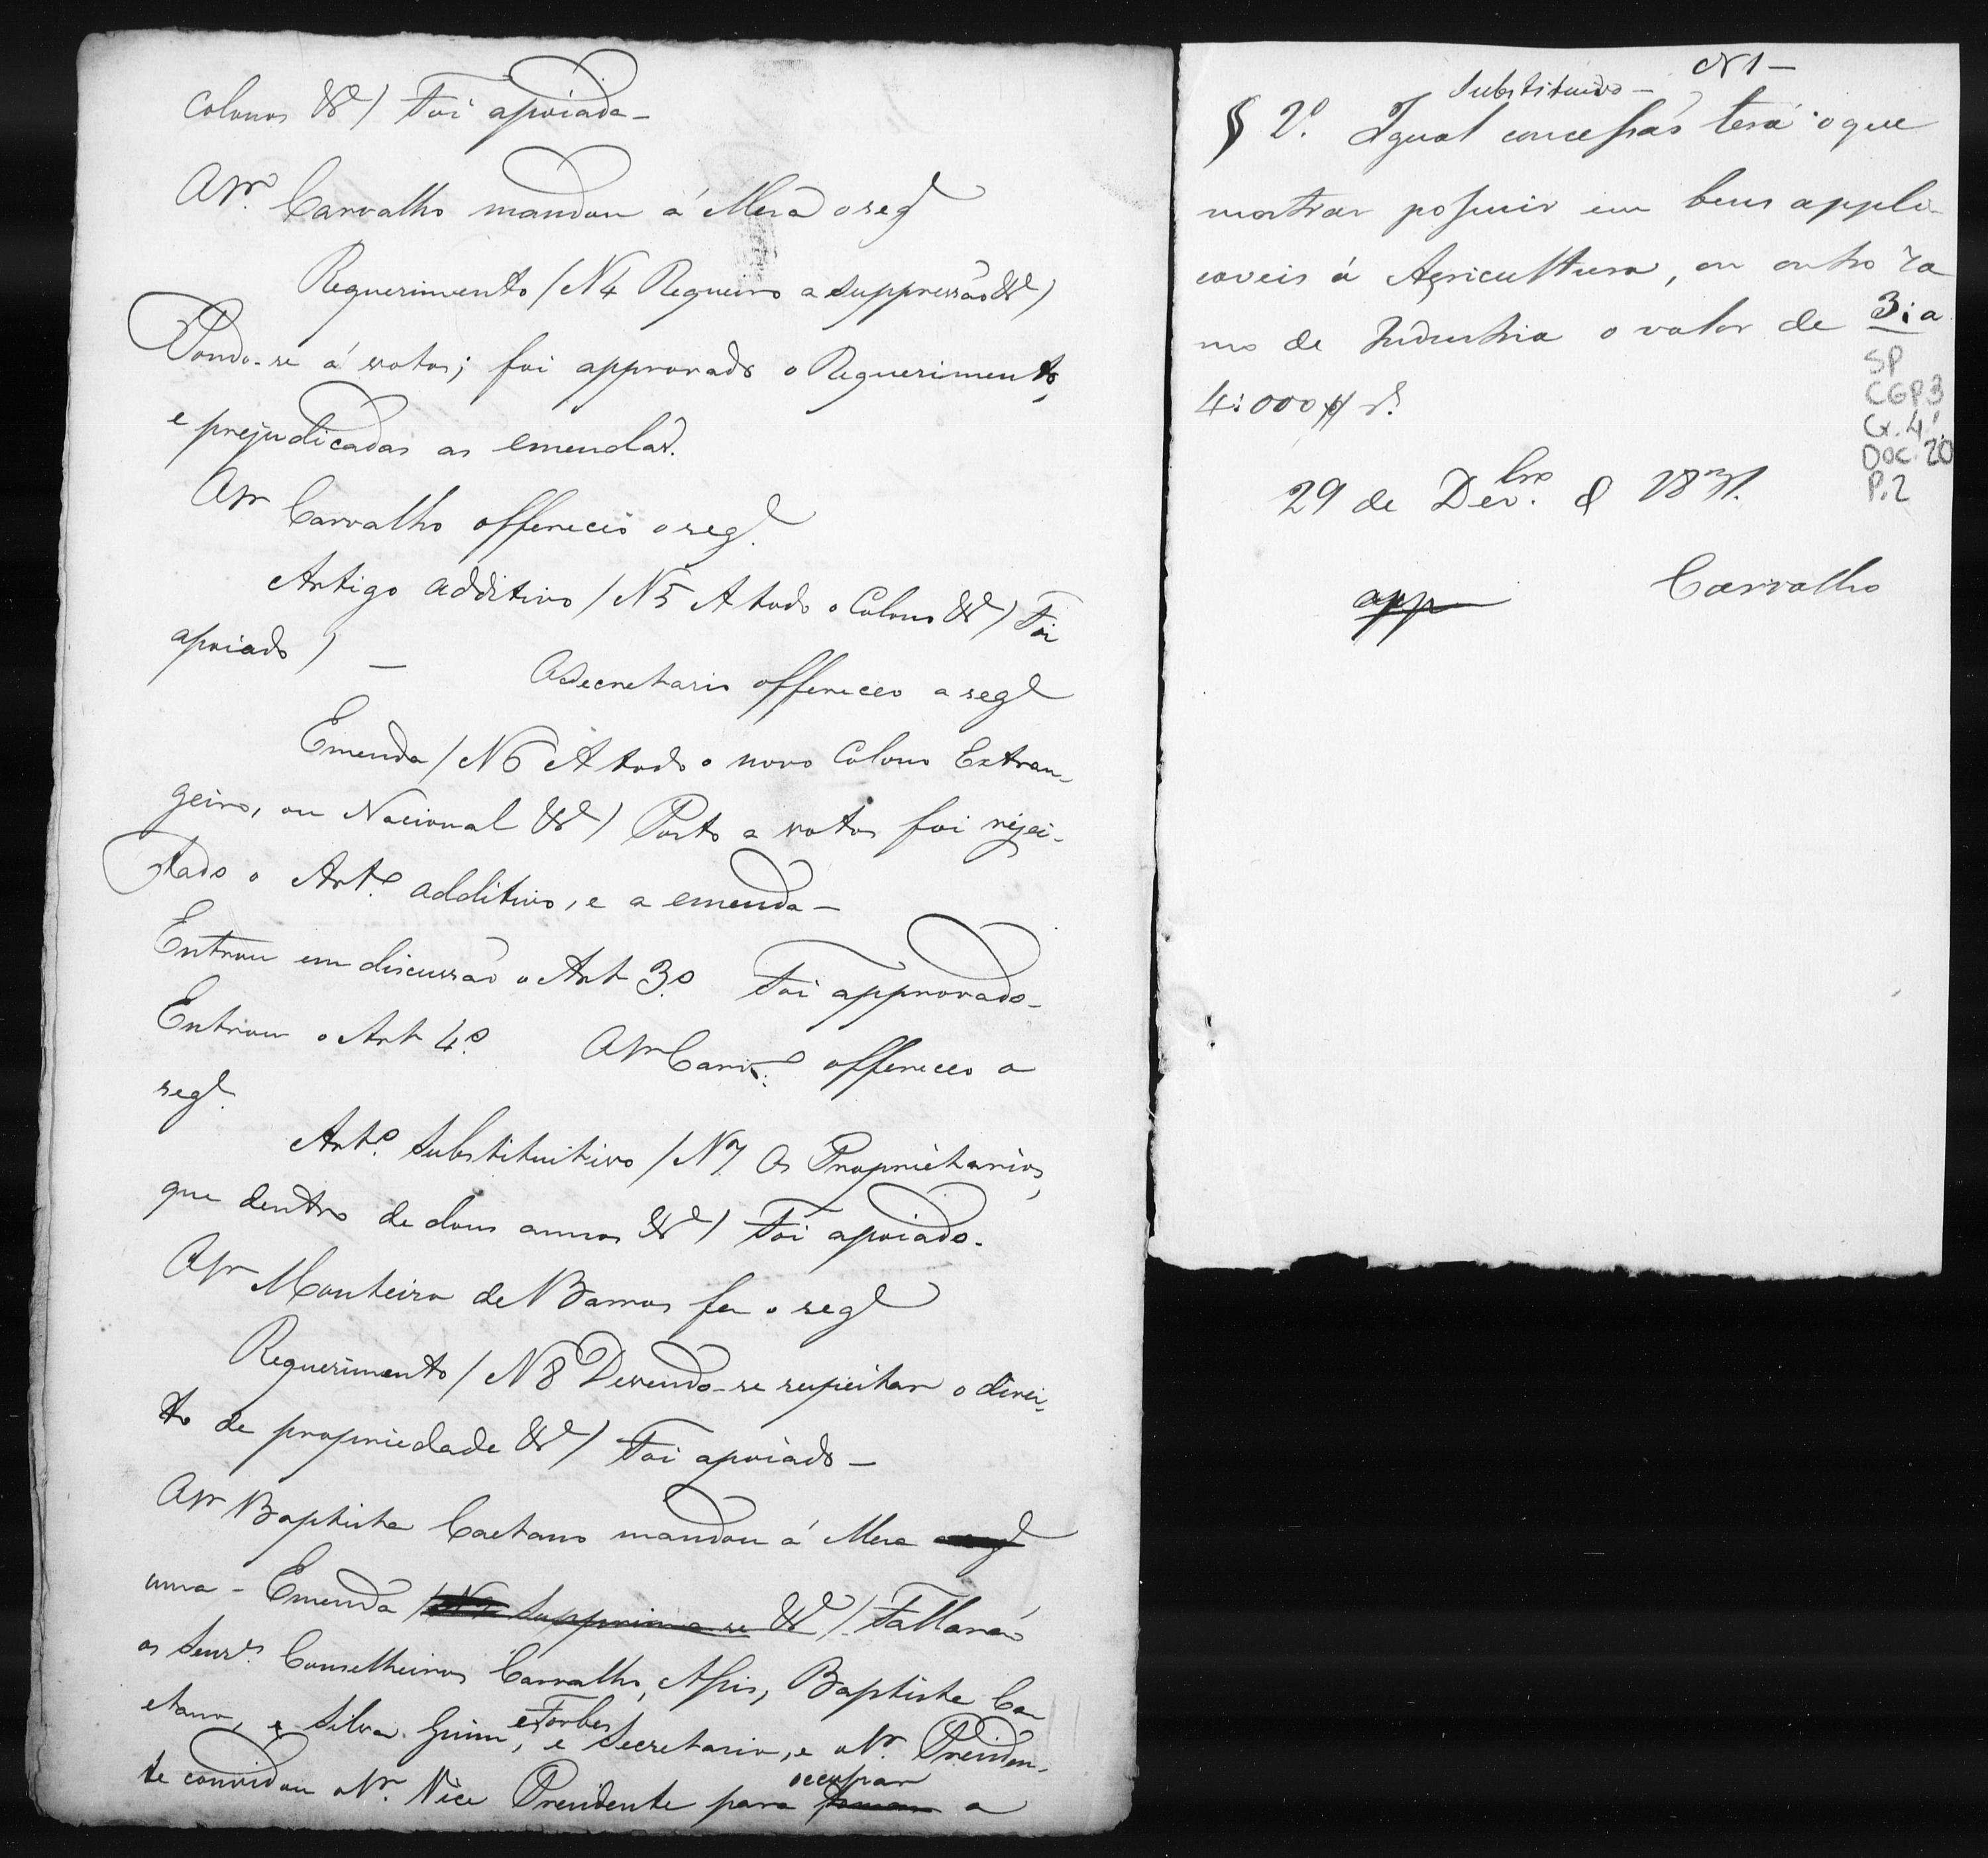 Colonos &ª) Foi apoiada—
O Sr. Carvalho mandou á Mesa o segᵉ
Requerimento (N 4 Requeiro a suppressão &ª)
Pondo-se á votos; foi approvado o Requerimento,
e prejudicadas as emendas.
O Sr Carvalho offereceo o segᵉ.
Artigo additivo (N 5 A todo o Colono &ª) Foi
apoiado) —
O Secretario offereceo a segᵉ
Emenda (N 6 A todo o novo Colono Extran-
geiro, ou Nacional &ª) Posto a votos foi rejei-
tado o Artº additivo, e a emenda—
Entrou em discussão o Art 3º Foi approvado—
Entrou o Art 4º O Sr Carvº offereceo o
segᵉ.
Artº Substituitivo (N 7 Os Proprietarios,
que dentro de dous annos &ª) Foi apoiado.
O Sr Monteiro de Barros fez o segᵉ
Requerimento (N 8 Devendo-se respeitar o direi-
to de propriedade &ª) Foi apoiado—
O Sr Baptista Caetano mandou á Mesa o segᵉ
uma - Emenda (Supprima se &ª). Fallarão
os Senrˢ Conselheiros Carvalho, Assis, Baptista Ca
etano, e Silva Guim, e Forbes, e Secretario, e o Sr. Presiden-
te convidou o Sr. Vice Presidente para occupar a
N 1—
Substituivo—
§ 2º. Igual concessão terá o que
mostrar possuir em bens appli-
caveis á Agricultura, ou outro ra
mo de Industria o valor de 3: a
4:000$ rˢ.
29 de Dezbro. de 1831.
app Carvalho
SP
CGP3
Cx. 4
DOC. 20
P. 2